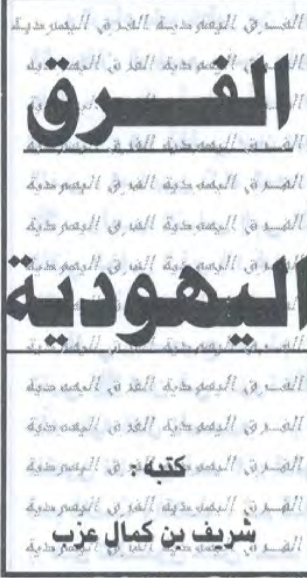 الفرق
اليهودية
كتبه :
شريف بن كمال عزب